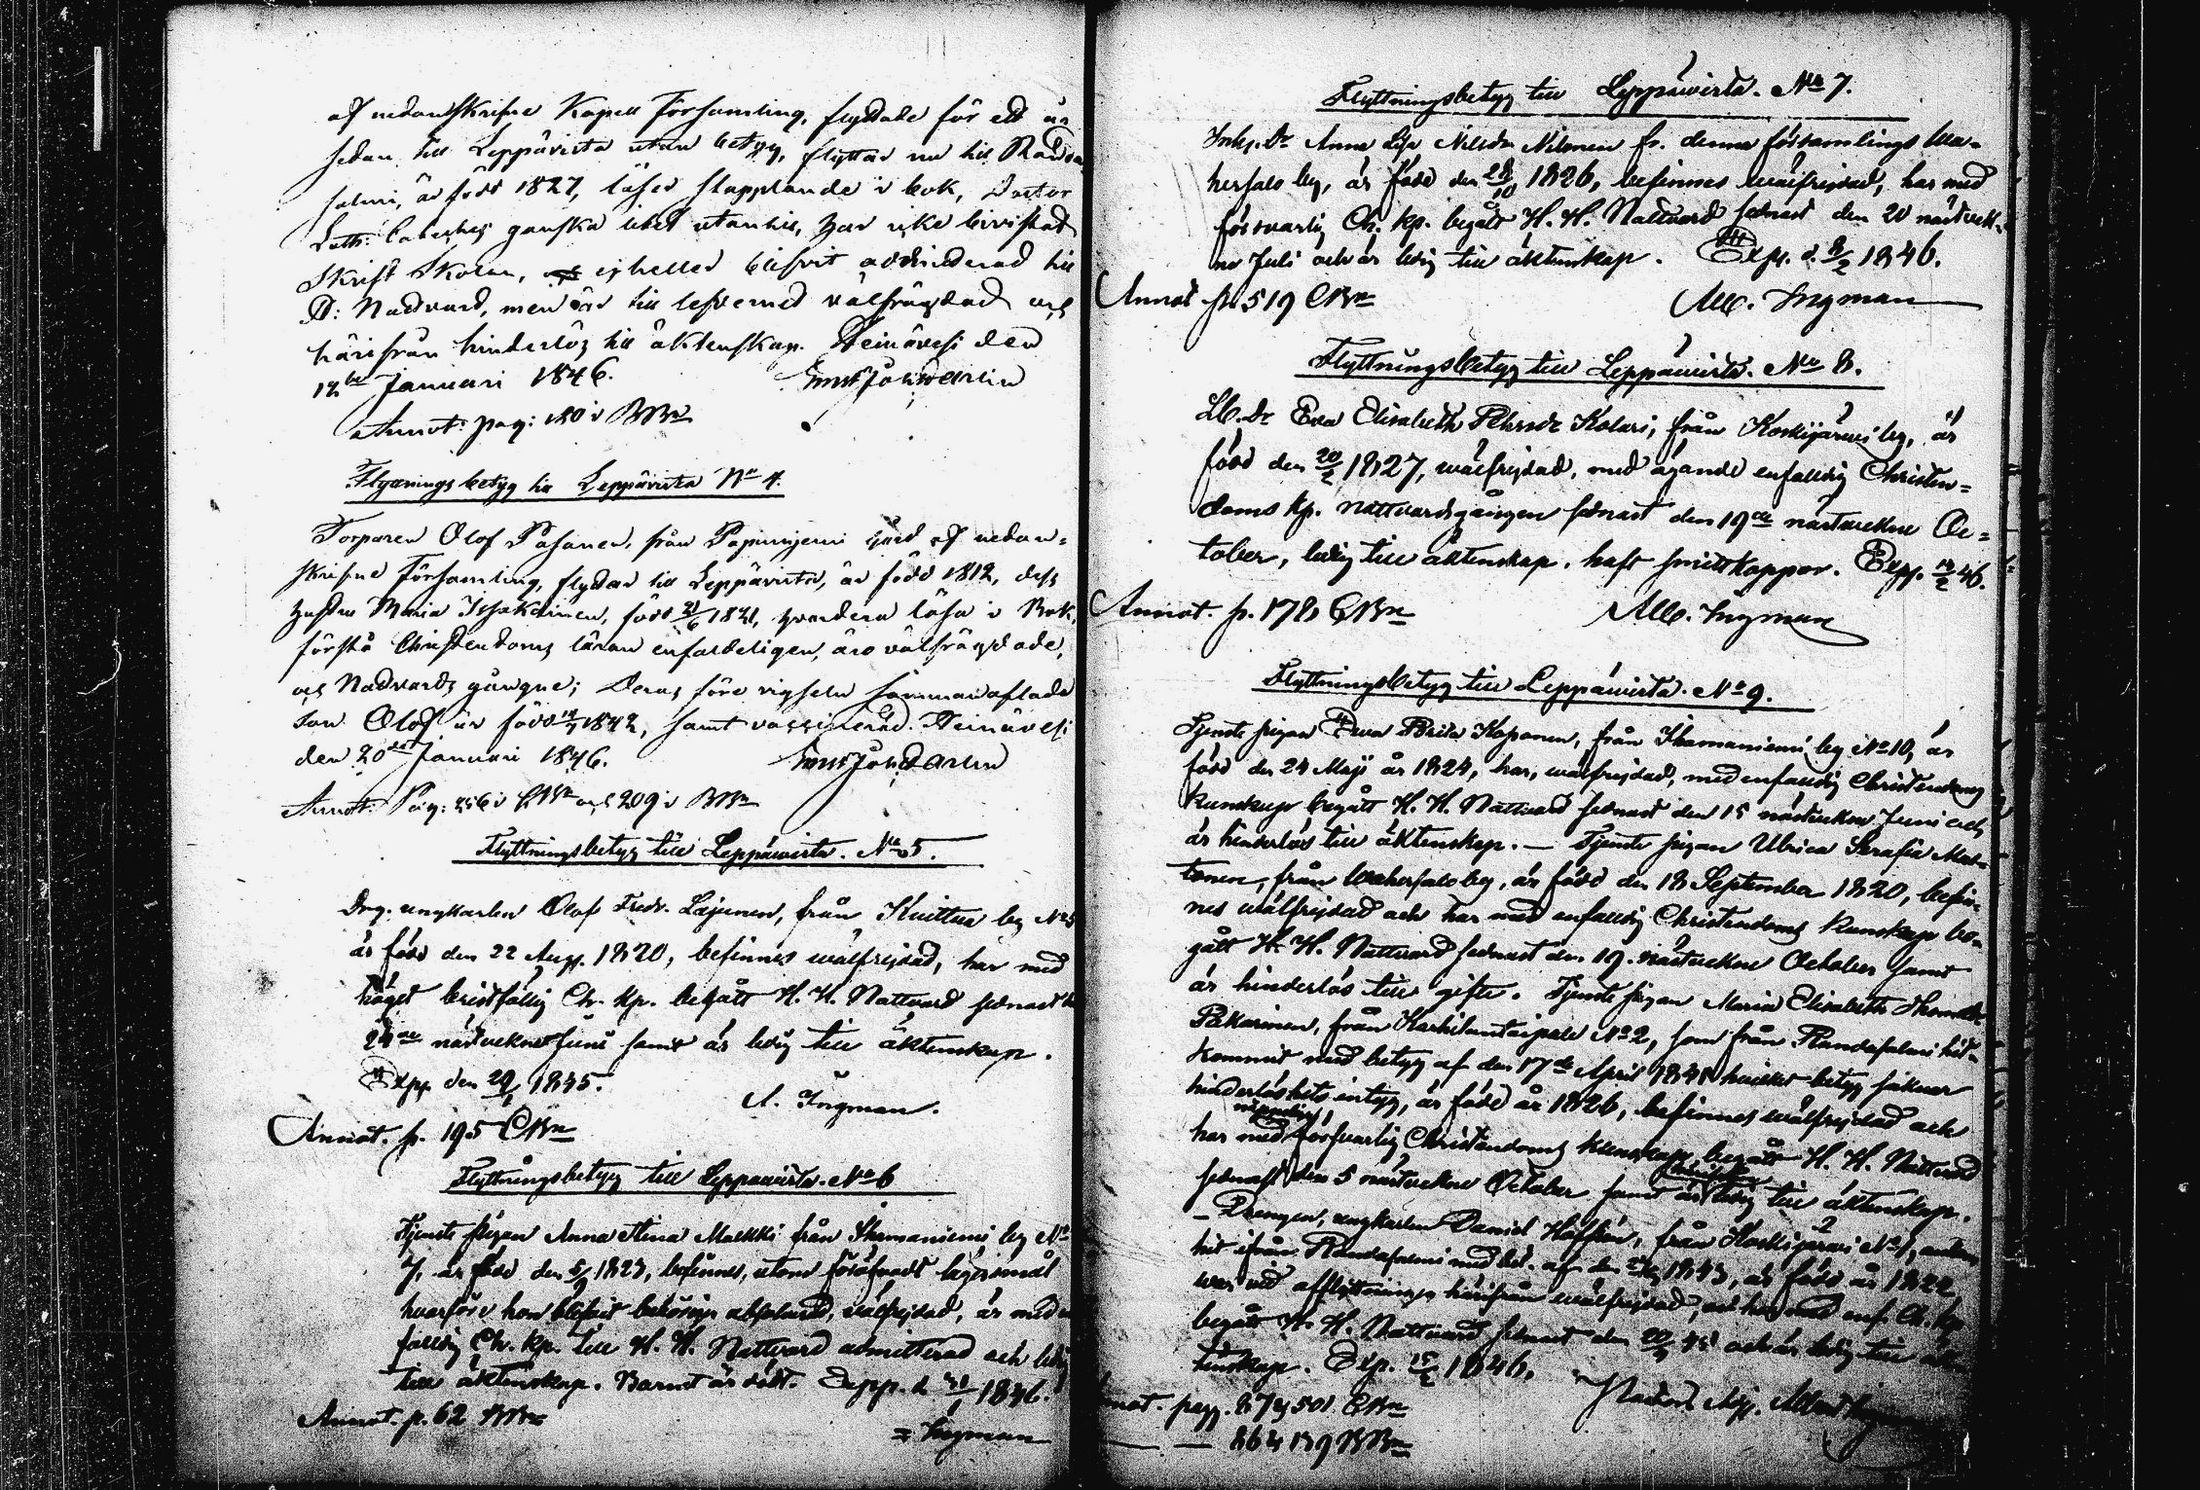 af nedanskrifne Kapell Församling, flyttade för ett år
sedan till Leppävirta utan betyg, flyttar nu till
salmi, är född 1827, läser stapplande i bok, Doctor
Luth: Cateches ganska utan till, har icke bivistat
Skrift Skolan, ej heller blifvit admitterad till
H: Nattvard, men är till lefverned välfrägdad och
härifrån hinderlös till äktenskap. Heinävesi den
12te Januari 1846.
Annot: pag: 180 i BBn
Flyttnings betyg till Leppävirta No 4.
Torparen Olof Pasanen, från Papinniemi gård af nedan-
skrifne Församling, flyttar till Leppävirta, är född 1812, dess
hustru Maria född 21/6 1821, hvardera läsa i Bok,
förstå Christendoms läran enfaldeligen, äro välfrägdade,
och Nattvards gångne; Deras före vigseln sammanaflade
son Olof är född 1842, samt vaccinerad. Heinävesi
den 20de Januari 1846.
Annot: Pag: 256 i CBn och 209 i BBn
Flyttningsbetyg till Leppäwirta. No 5.
Drg. ungkarlen Olof Fredr. Laijunen, från Kuittua by No 5
är född den 22 Aug. 1820, befinnes wälfrejdad, har med
något bristfällig Ch. kp. begått H. H. Nattvard sednast
24de nästvekne Juni samt är ledig till äktenskap.
Exp. den 29/1 1845.
A. Ingman.
Annot. p. 195 CBn
Flyttningsbetyg till Leppäwirta. No 6
Tjenste pigan Anna Stina Malkki från Ihamaniemi by No
7, är född den 5/9 1823, befinnes, utom föröfvadt lägersmål
hvarföre hon blifvit behörigen absolverad, wälfrejdad, är med
faldig Ch. kp. till H. H. Nattvard admitterad och ledig
till äktenskap. Barnet är dödt. Expp. d 31/1 1846.
Ingman
Annot. p. 62 BBn
Flyttningsbetyg till Leppäwirta. No 7.
Inhs. Dr Anna Lisa Nilsdr Nilonen fr. denna församlings Wa-
hersalo by, är född den 28/10 1826, befinnes wälfrejdad, har med
försvarlig Ch. kp. begått H. H. Nattvard sednast den 20 nästvek-
ne Juli och är ledig till äktenskap. Exp. d. 8/2 1846.
Annot p. 519 CBn
Alb. Ingman
Flyttningsbetyg till Leppäwirta. No 8.
Lb. Dr Eva Elisabeth Pehrsdr Kolari, från Koskijärwi by, är
född den 20/2 1827, wälfrejdad, med ägande enfaldig Christen-
doms kp. nattvardsgången sednast den 19de nästvekne Oc-
tober, ledig till äktenskap, haft smittkoppor. Expp. 12/2 46.
Annot. p. 178 CBn
Alb. Ingman
Flyttningsbetyg till Leppäwirta. No 9.
Tjenste pigan Eva Brita Koponen, från Ihamaniemi by No 10, är
född den 24 Maji år 1824, har, wälfrejdad, med enfaldig Christendoms
kunskap begått H. H. Nattvard sednast den 15 nästvekne Juni och
är hinderlös till äktenskap. — Tjenste pigan Ulrica Serafia Mar-
tonen, från Wahersalo by, är född den 18 September 1820, befin-
nes wälfrejdad och har med enfaldig Christendoms kunskap be-
gått H. H. Nattvard sednast den 19. nästvekne October samt
är hinderlös till gifte. Tjenste pigan Maria Elisabeth Thomasdr
Pakarinen, från Karhilantaipale No 2, som från Randasalmi hit-
kommit med betyg af den 17de April 1841 hvilket betyg saknar
hinderlöshets intyg, är född år 1826, befinnes wälfrejdad och
har med försvarlig Christendoms kunskap begått H. H. Nattvard
sednast den 5 nästvekne October samt är ledig till äktenskap.
— Drengen, ungkarlen Daniel Hoffrén, från Koskijärwi No 1,
hit ifrån Randasalmi med bet. af den 1843, är född år 1822,
war vid afflyttning härifrån wälfrejdad, och har med enf. Ch. kp
begått H. H. Nattvard sednast den 20/7 45 och är ledig till äk-
tenskap. Exp. 15/2 1846.
pagg. 87 & 501 CBn
— — 864 139 BBn